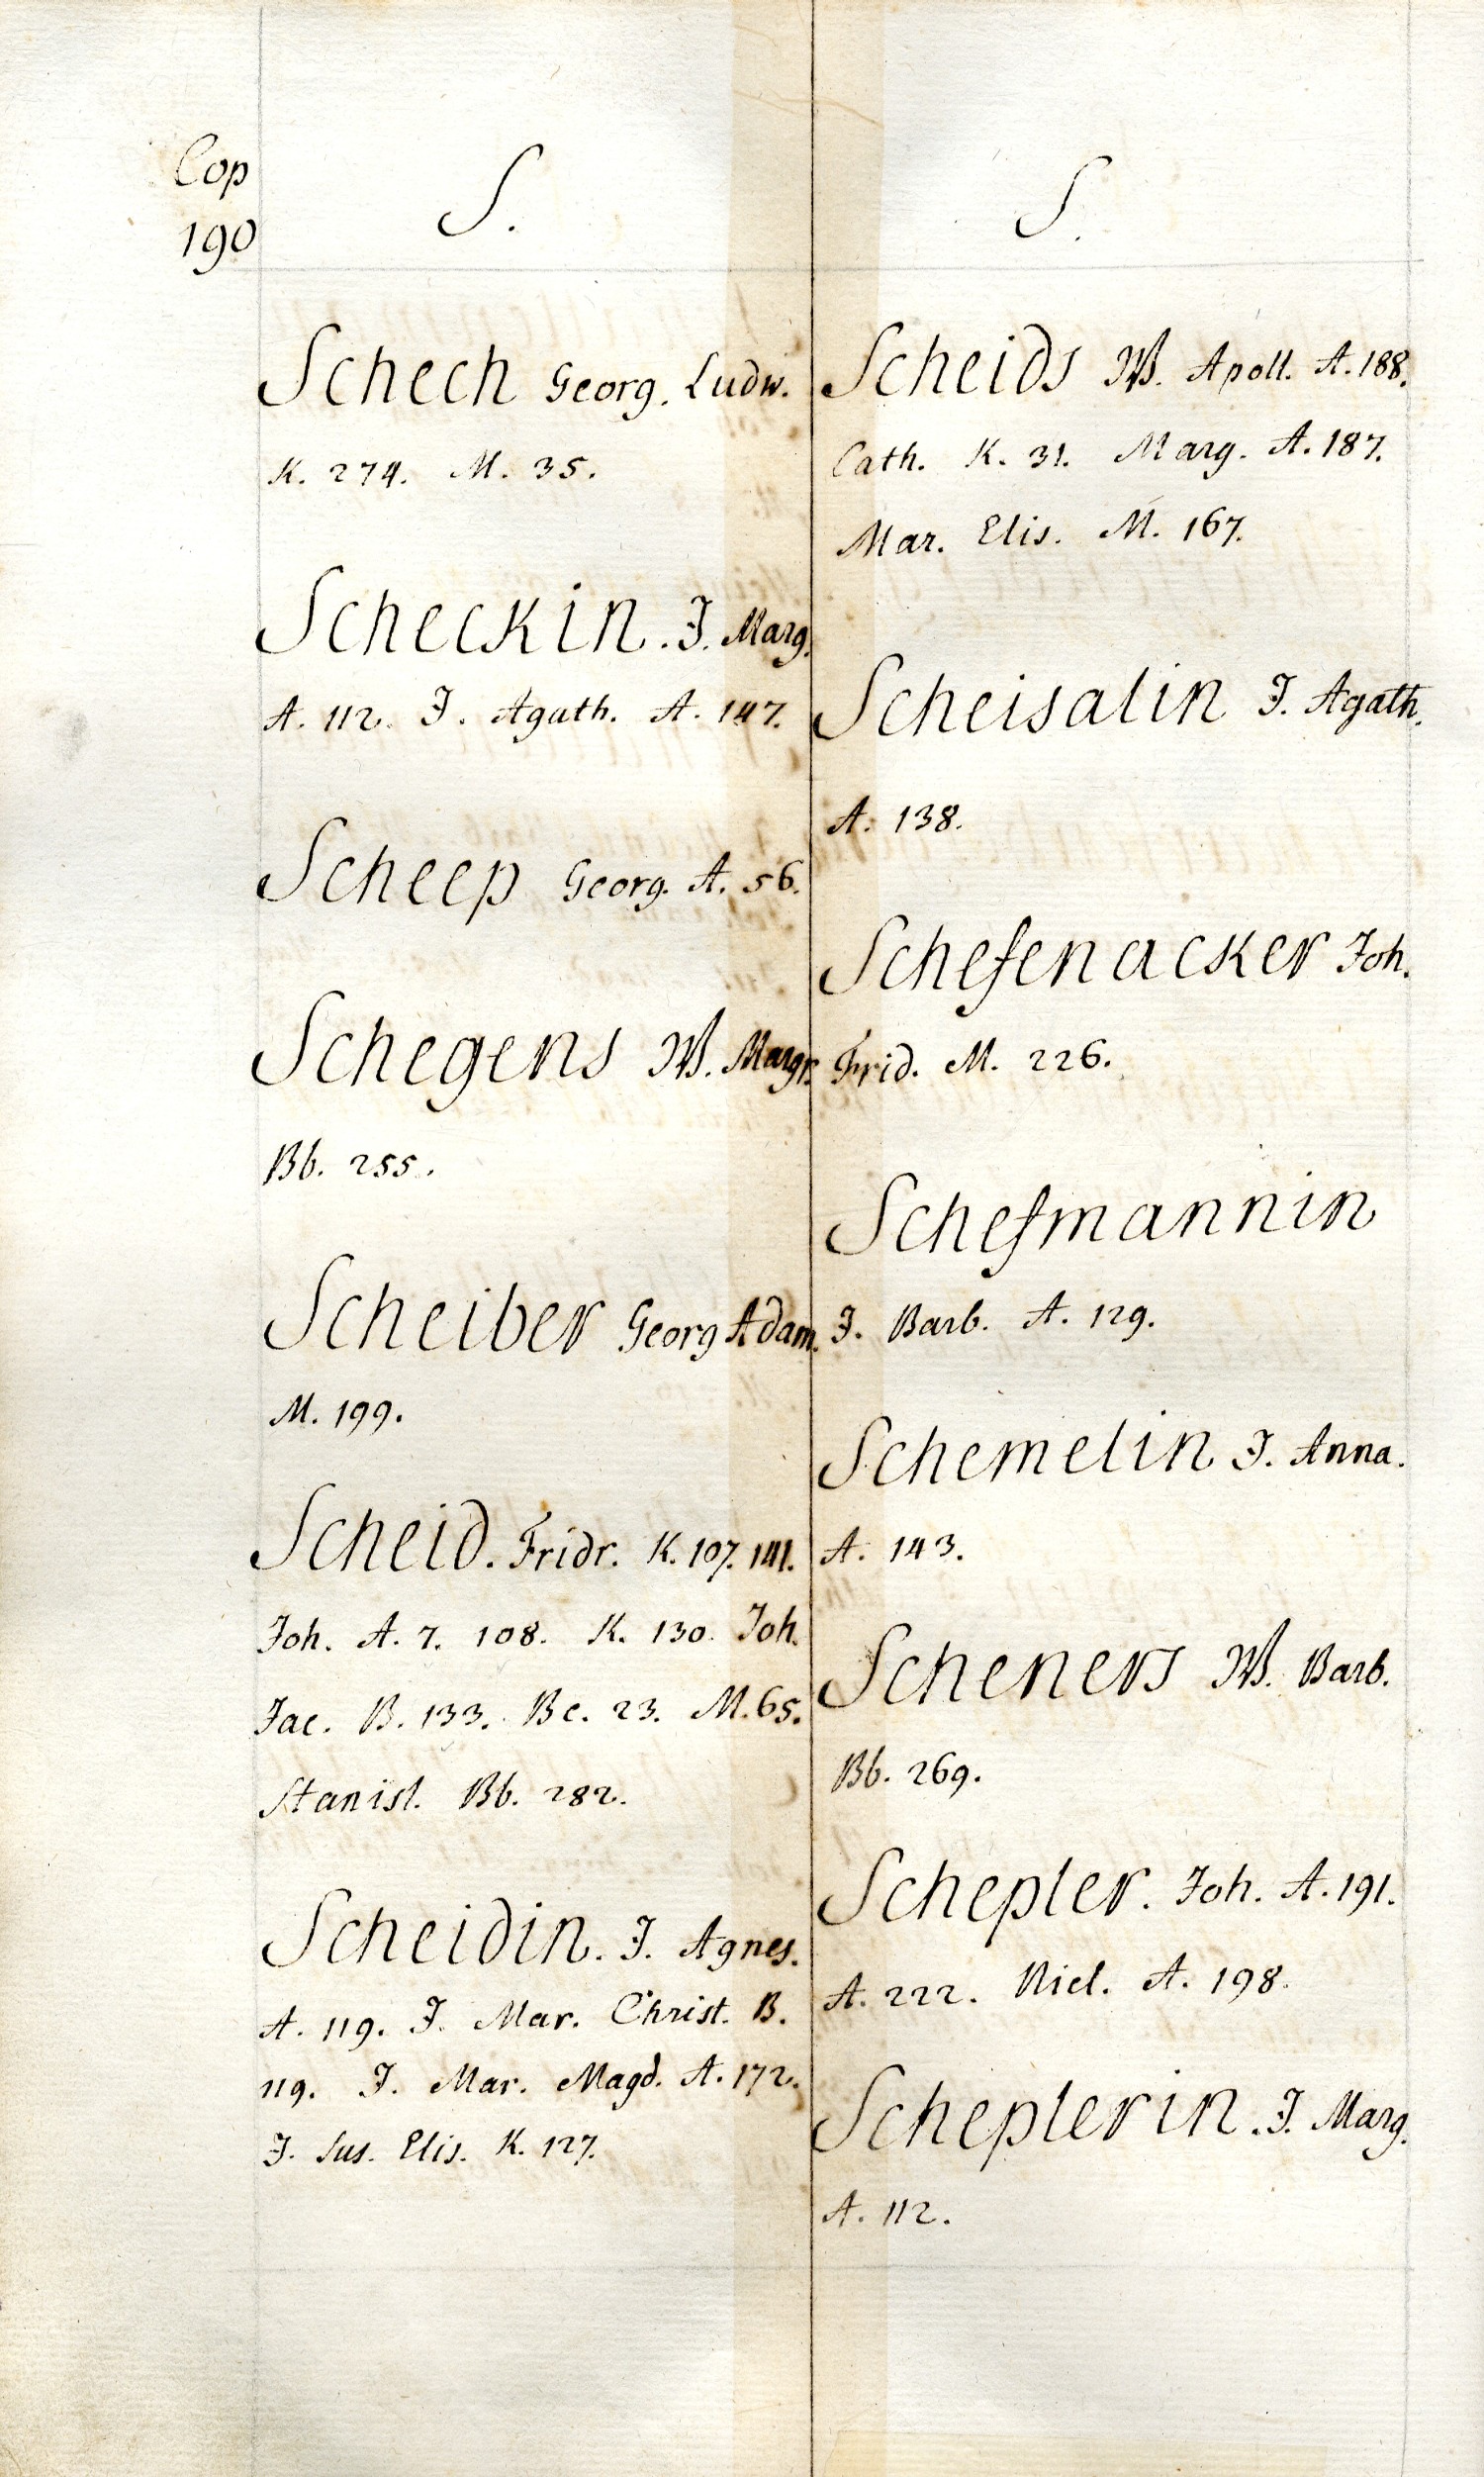 Cop
190
S.
Schech Georg. Ludw.
K. 274. M. 35.
Scheckin. J. Marg.
A. 112. J. Agath. A. 147.
Scheep Georg. A. 56.
Schegens W. Margr.
Bb. 255.
Scheiber Georg Adam.
M. 199.
Scheid. Fridr. K. 107. 141.
Joh. A. 7. 108. K. 130. Joh.
Jac. B. 133. Bc. 23. M. 65.
Stanisl. Bb. 282.
Scheidin. J. Agnes.
A. 119. J. Mar. Christ. B.
119. J. Mar. Magd. A. 172.
J. Sus. Elis. K. 127.
S.
Scheids W. Apoll. A. 188.
Cath. K. 31. Marg. A. 187.
Mar. Elis. M. 167.
Scheisalin J. Agath.
A. 138.
Schefenacker Joh.
Frid. M. 226.
Schefmannin
J. Barb. A. 129.
Schemelin J. Anna.
A. 143.
Scheners W. Barb.
Bb. 269.
Schepler. Joh. A. 191.
A. 222. Nicl. A. 198.
Scheplerin. J. Marg.
A. 112.